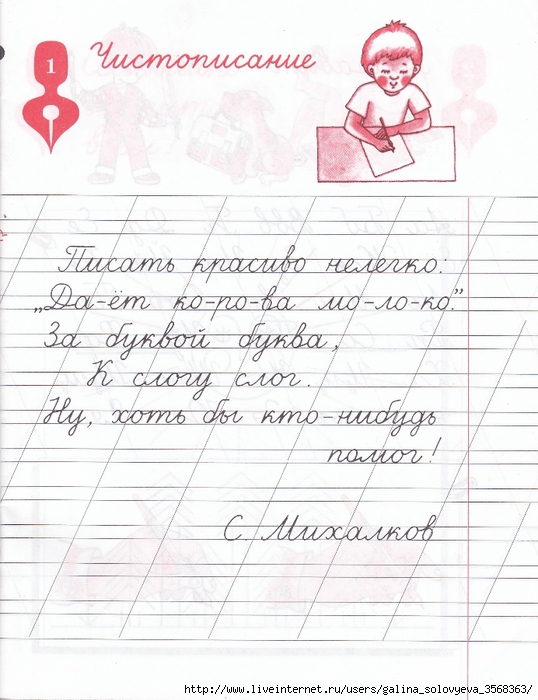 1
Чистописание
Писать красиво нелегко:
„Да-ёт ко-ро-ва мо-ло-ко.”
За буквой буква,
К слогу слог.
Ну, хоть бы кто-нибудь
помог!
С. Михалков
http://www.liveinternet.ru/users/galina_solovyeva_3568363/